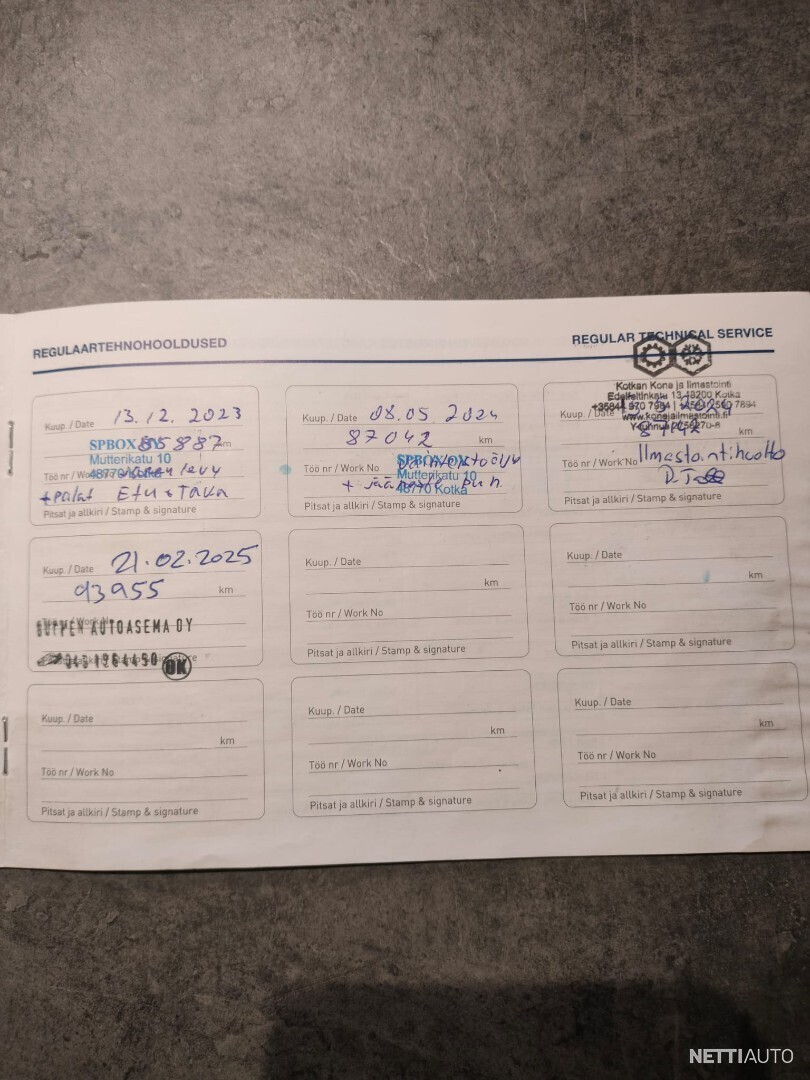 REGULAARTEHNOHOOLDUSED
REGULAR TECHNICAL SERVICE
Kuup. / Date 13.12.2023
85887 km
SPBOX OY
Mutterikatu 10
48770 Kotka
Töö nr / Work No
+palat Etu + Taka
Pitsat ja allkiri / Stamp & signature
Kuup. / Date 08.05.2024
87042 km
SPBOX OY
Mutterikatu 10
48770 Kotka
Töö nr / Work No
Pitsat ja allkiri / Stamp & signature
Kotkan Kone ja Ilmastointi
Edelfeltinkatu 13, 48200 Kotka
www.konejailmastointi.fi
Kuup. / Date
Töö nr / Work No Ilmastointihuolto
Pitsat ja allkiri / Stamp & signature
Kuup. / Date 21.02.2025
93955 km
AUTOASEMA OY
OK
Kuup. / Date
km
Töö nr / Work No
Pitsat ja allkiri / Stamp & signature
Kuup. / Date
km
Töö nr / Work No
Pitsat ja allkiri / Stamp & signature
Kuup. / Date
km
Töö nr / Work No
Pitsat ja allkiri / Stamp & signature
Kuup. / Date
km
Töö nr / Work No
Pitsat ja allkiri / Stamp & signature
Kuup. / Date
km
Töö nr / Work No
Pitsat ja allkiri / Stamp & signature
NETTIAUTO